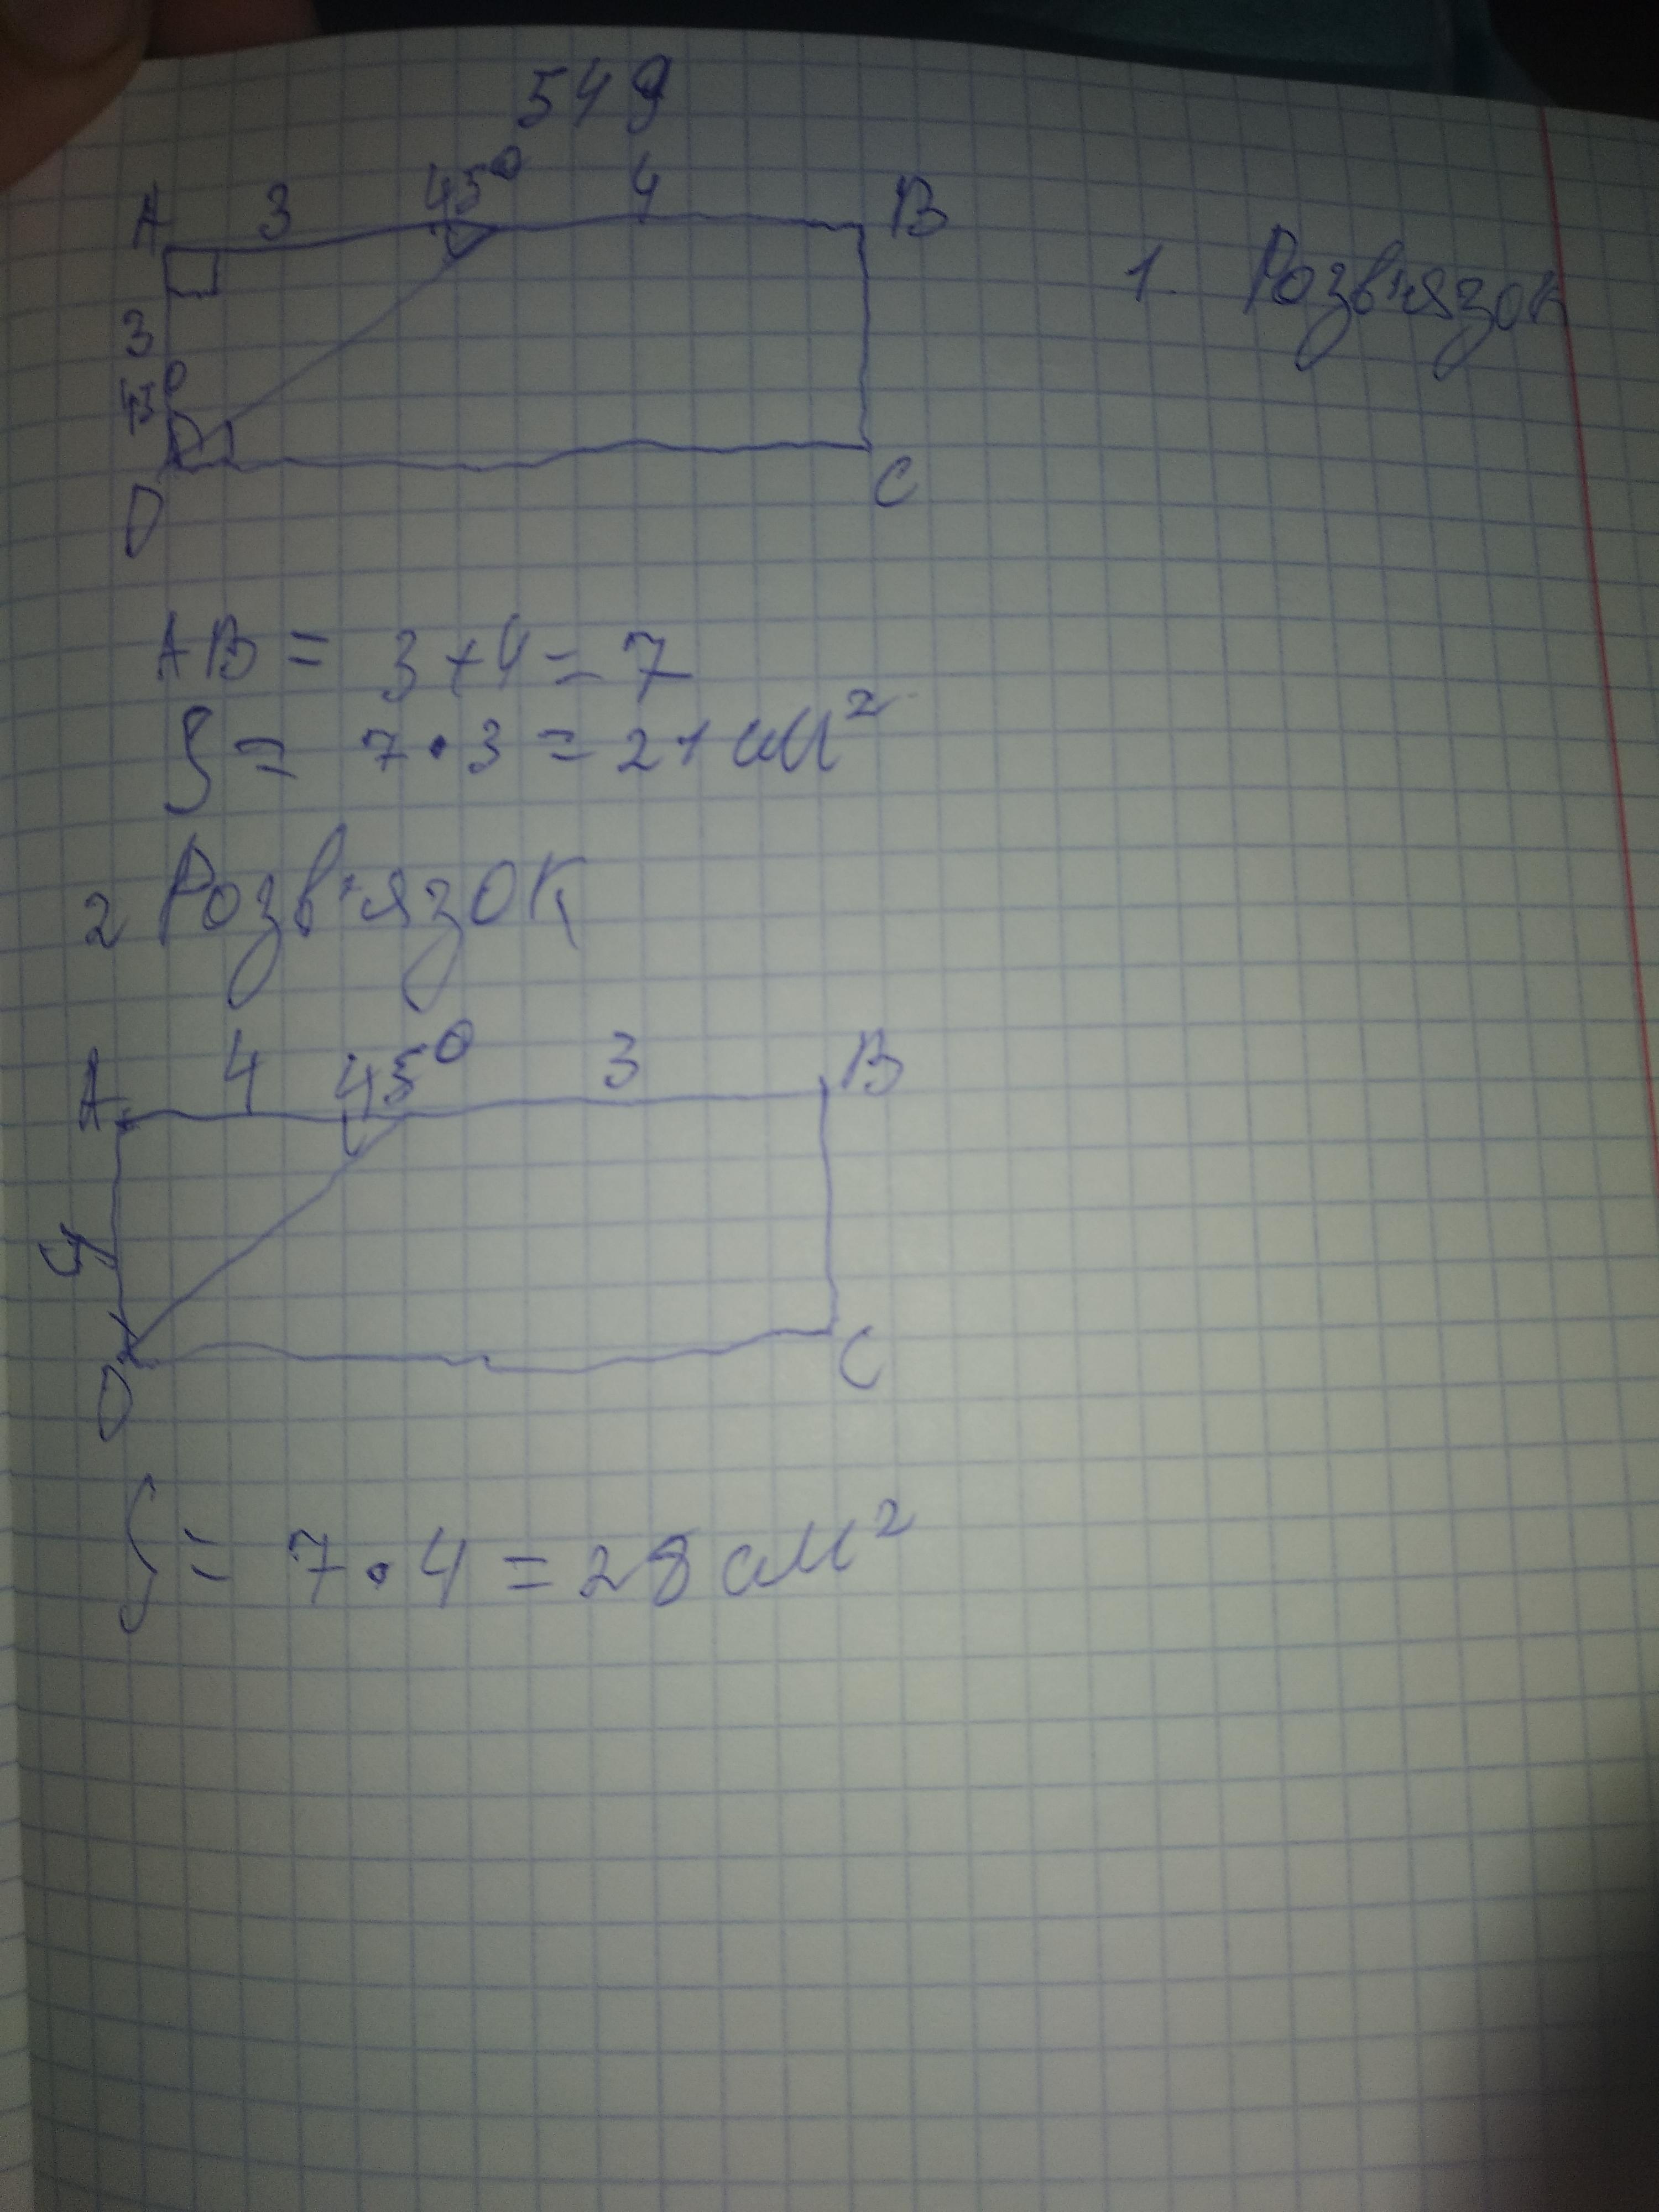 549
A 3 45° 4 B
1. Розв'язок
3
45°
D C
AB = 3+4=7
S = 7·3 = 21 см²
2 Розв'язок
A 4 45° 3 B
4
D C
S = 7·4 = 28 см²